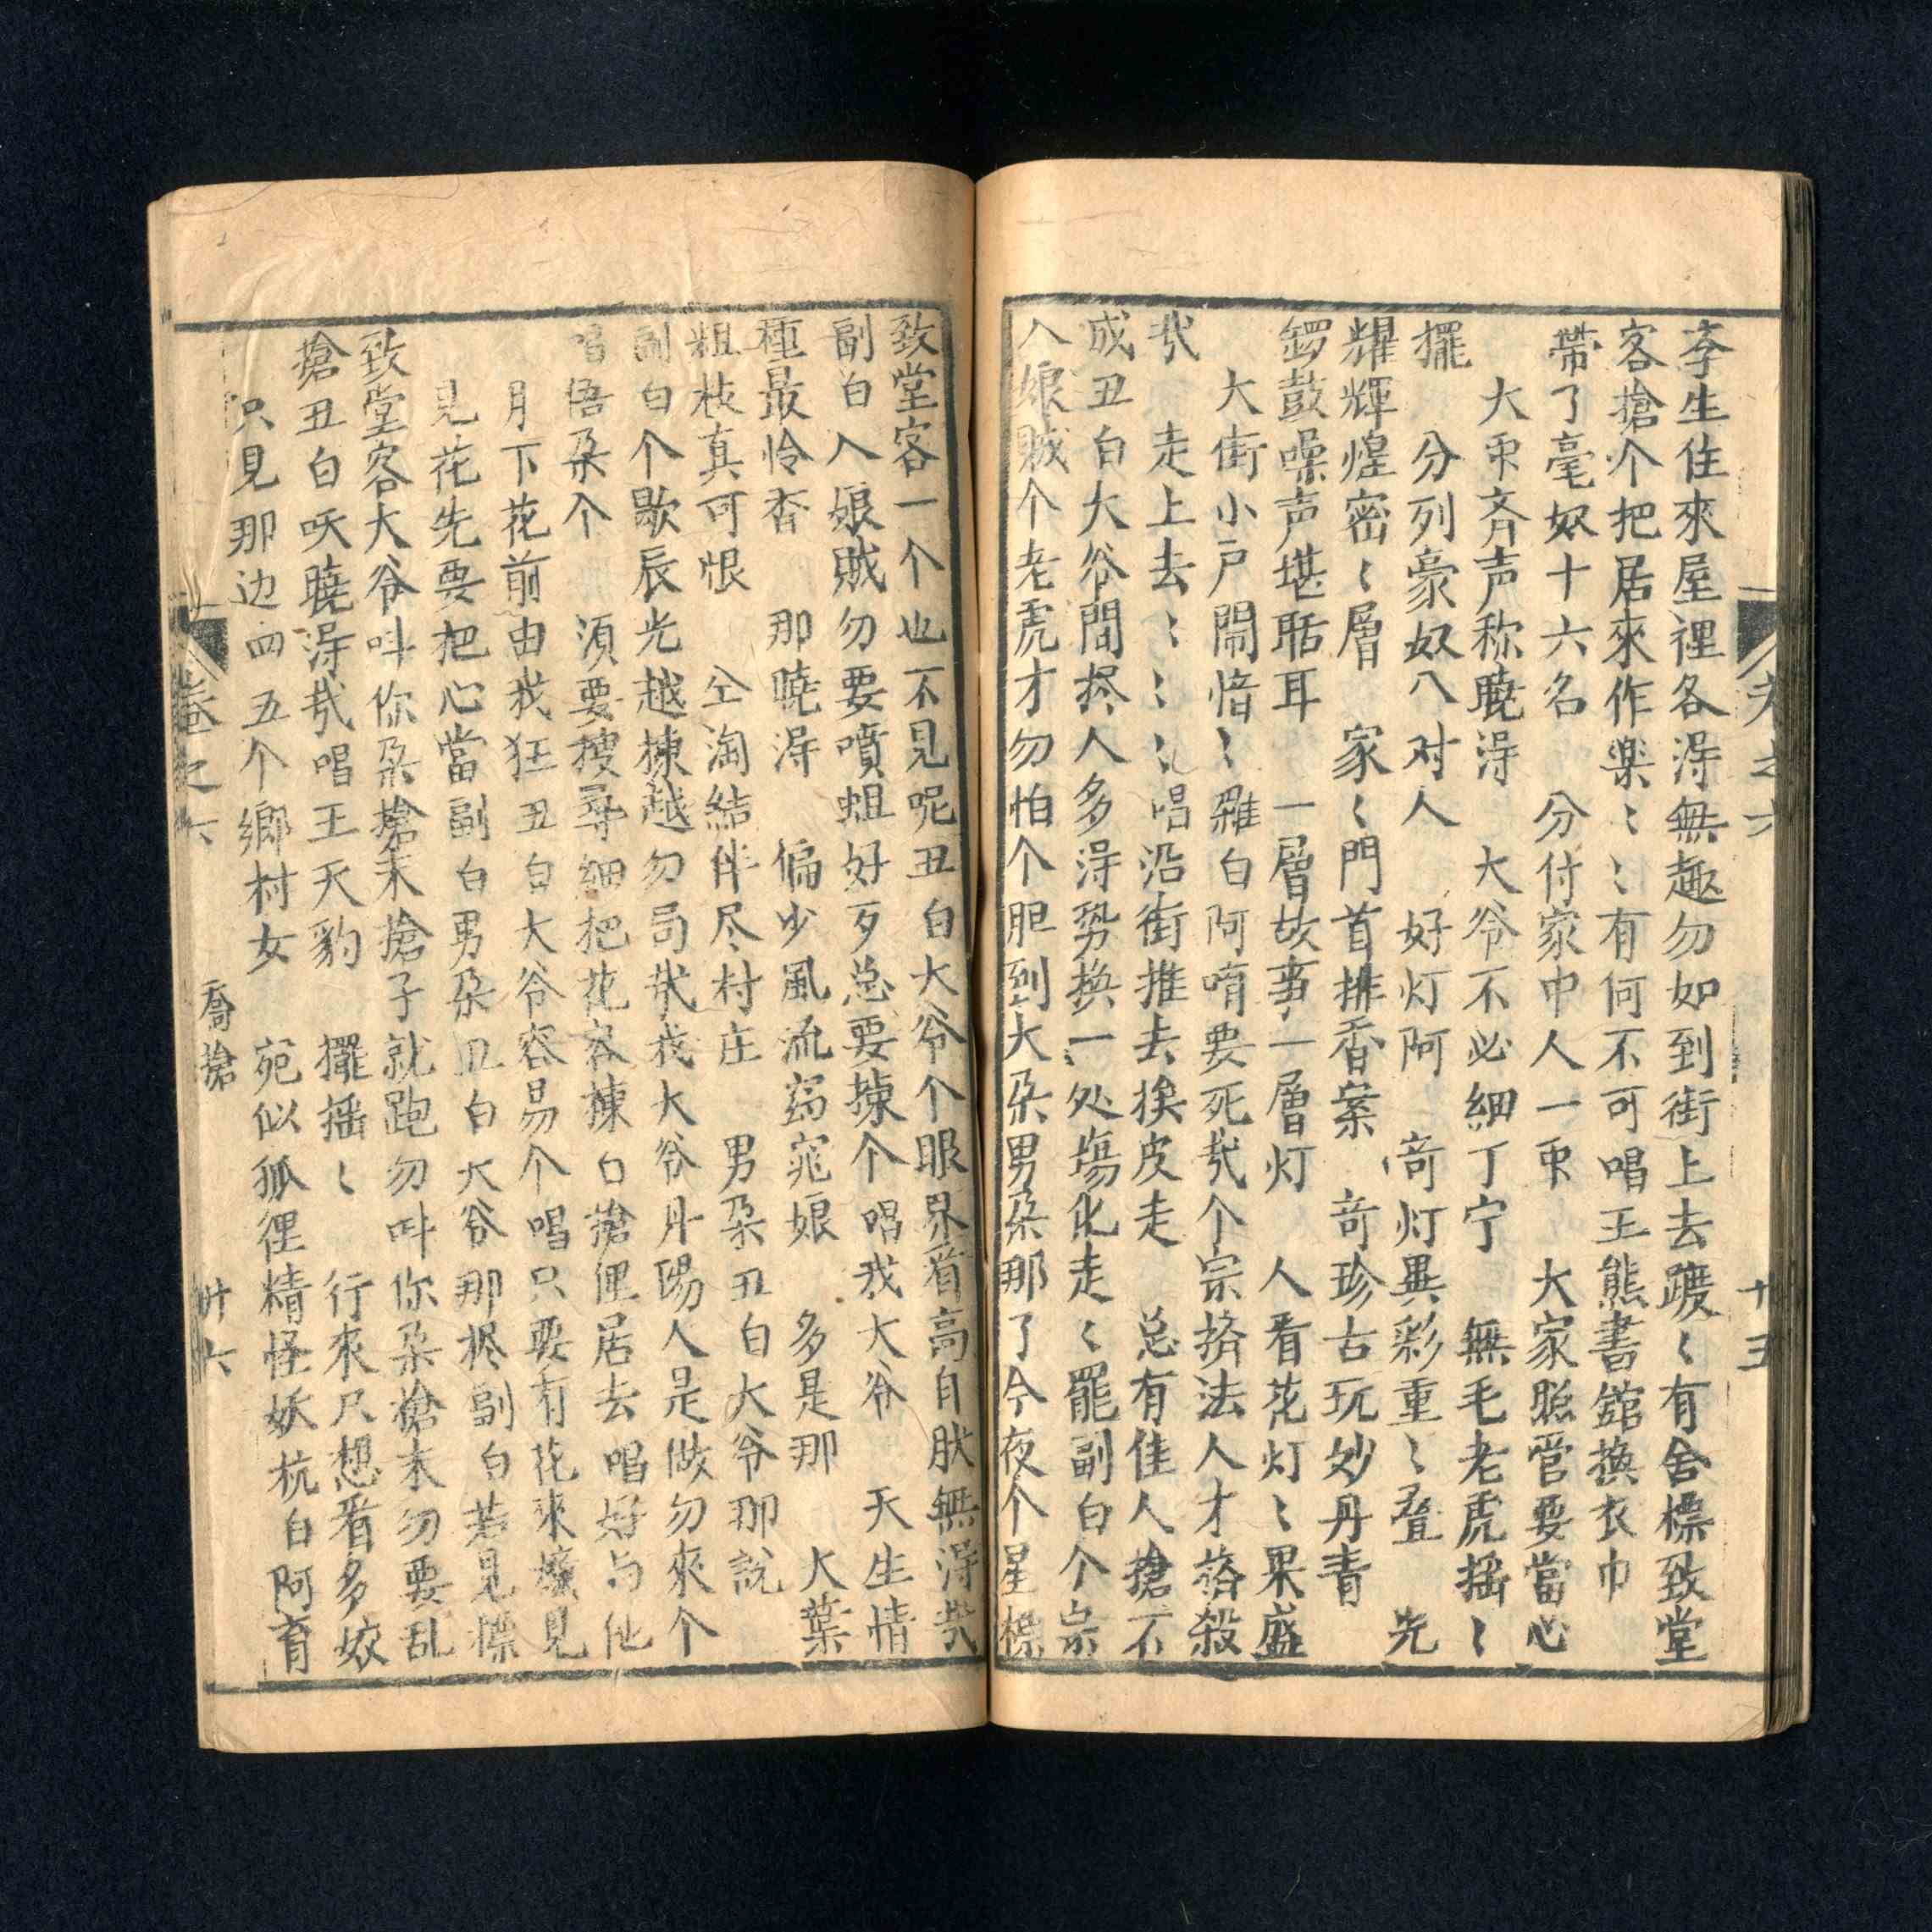 李生住來屋裡各淂無趣勿如到街上去踱〻有舍標致堂
客搶个把居來作楽〻〻有何不可唱王熊書舘換衣巾
帶了毫奴十六名　分付家中人一同　大家照管要當心
大𠕇斉声称曉淂　大爷不必細丁宁　無毛老虎揺〻
擺　分列豪奴八对人　好灯阿　竒灯異彩重〻叠　先
耀輝煌密〻層　家〻門首排香案　竒珍古玩妙丹青
鑼鼓噪声堪聒耳　一層故事一層灯　人看花灯〻果盛
大街小戸閙惜〻雜白阿唷要死㢤个宗擠法人才落殺
㢤　走上去〻〻〻唱沿街推去挨皮走　总有佳人搶不
成丑白大爷間搽人多淂势換一处塲化走〻罷副白个宗
入娘賊个老虎才勿怕个胆到大朵男朵那了今夜个星標
致堂客一个也不見呢丑白大爷个眼界看高自肰無淂㢤
副白入娘賊勿要噴蛆好歹总要揀个唱我大爷　天生情
種最怜香　那曉淂　偏少風流窈窕娘　多是那　大葉
粗枝真可恨　仝淘結伴尽村庄　男朵丑白大爷那説
副白个歇辰光越揀越勿局㢤我大爷丹陽人是做勿來个
唱悟朵个　湏要搜尋細把花容揀白搶俚居去唱好与他
月下花前由我狂丑白大爷容易个唱只要有花來壞見
見花先要把心當副白男朵丑白大爷那搽副白若見標
致堂客大爷呌你朵搶末搶子就跑勿呌你朵搶末勿要乱
搶丑白呅曉淂㢤唱王天豹　擺揺〻　行來只想看多姣
只見那边四五个鄉村女　苑似狐狸精怪妖杭白阿育
卷之六　喬搶　廿六